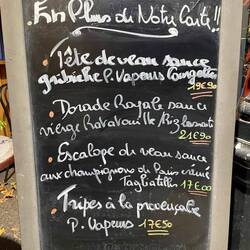 En Plus de Notre Carte !!
Tête de veau sauce
gribiche P. Vapeurs
19€90
Dorade Royale sauce
vierge Ratatouille Riz
21€90
Escalope de veau sauce
aux champignons de Paris crème
Tagliatelles 17€00
Tripes à la provençale
P. Vapeurs 17€50